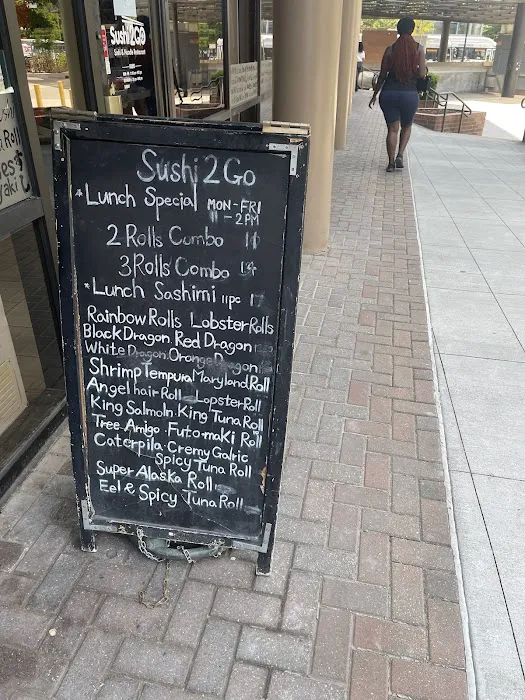 Sushi2GO
Sushi2Go
*Lunch Special MON-FRI
11-2PM
2 Rolls Combo 11
3 Rolls Combo 14
*Lunch Sashimi 11pc 17
Rainbow Rolls Lobster Rolls
Black Dragon. Red Dragon
White Dragon. Orange Dragon
Shrimp Tempura Maryland Roll
Angel hair Roll Lopster Roll
King Salmoln. King Tuna Roll
Tree Amigo. Futo-maki Roll
Caterpila. Cremy Galric
Spicy Tuna Roll
Super Alaska Roll
Eel & Spicy Tuna Roll